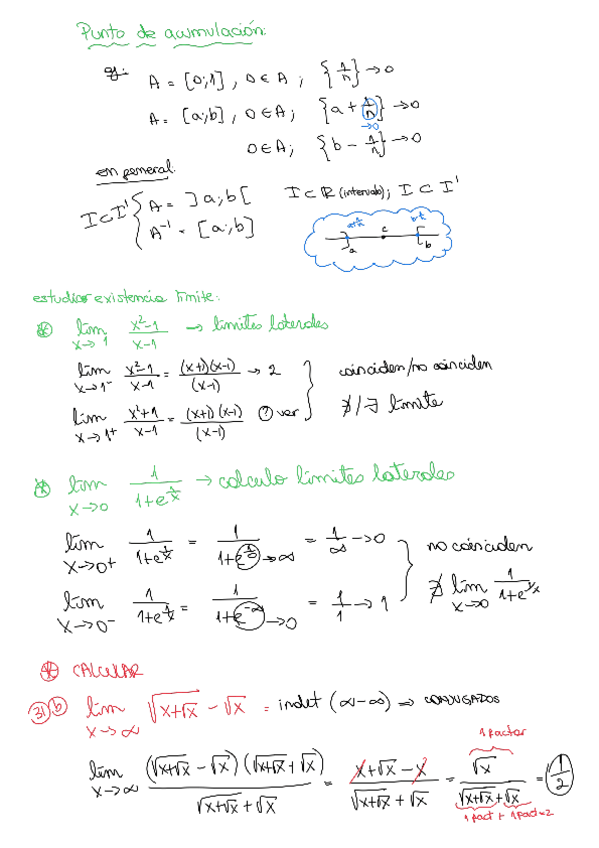 Punto de acumulación:
ej: A = [0;1], 0 ∈ A; {1/n} → 0
A = [a;b], 0 ∈ A; {a + 1/n} → 0
→0
0 ∈ A; {b - 1/n} → 0
en general:
I ⊂ I' { A = ]a;b[ I ⊂ ℝ (intervalo); I ⊂ I'
A⁻¹ = [a;b]
a+1/n c b-1/n
a b
estudiar existencia límite:
* lim x→1 (x²-1)/(x-1) → límites laterales
lim x→1⁻ (x²-1)/(x-1) = (x+1)(x-1)/(x-1) → 2 } coinciden/no coinciden
lim x→1⁺ (x²+1)/(x-1) = (x+1)(x-1)/(x-1) ? ver } ∄/∃ límite
* lim x→0 1/(1+e^(1/x)) → calculo límites laterales
lim x→0⁺ 1/(1+e^(1/x)) = 1/(1+e^(1/0)) →∞ = 1/∞ → 0 } no coinciden
lim x→0⁻ 1/(1+e^(1/x)) = 1/(1+e^(-∞)) →0 = 1/1 → 1 } ∄ lim x→0 1/(1+e^(1/x))
* CALCULAR
31 b lim x→∞ √(x+√x) - √x = indet (∞-∞) ⇒ CONJUGADOS
1 factor
lim x→∞ (√(x+√x) - √x)(√(x+√x) + √x) / (√(x+√x) + √x) = (x+√x-x)/(√(x+√x) + √x) = √x/(√(x+√x)+√x) = 1/2
1 fact + 1 fact = 2